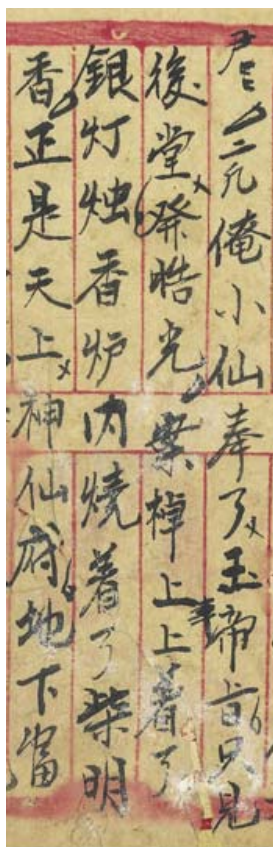 君二凡俺小仙奉了玉帝旨只見
後堂發皓光案棹上上着了
銀灯烛香炉内燒着了柴明
香正是天上神仙府地下富